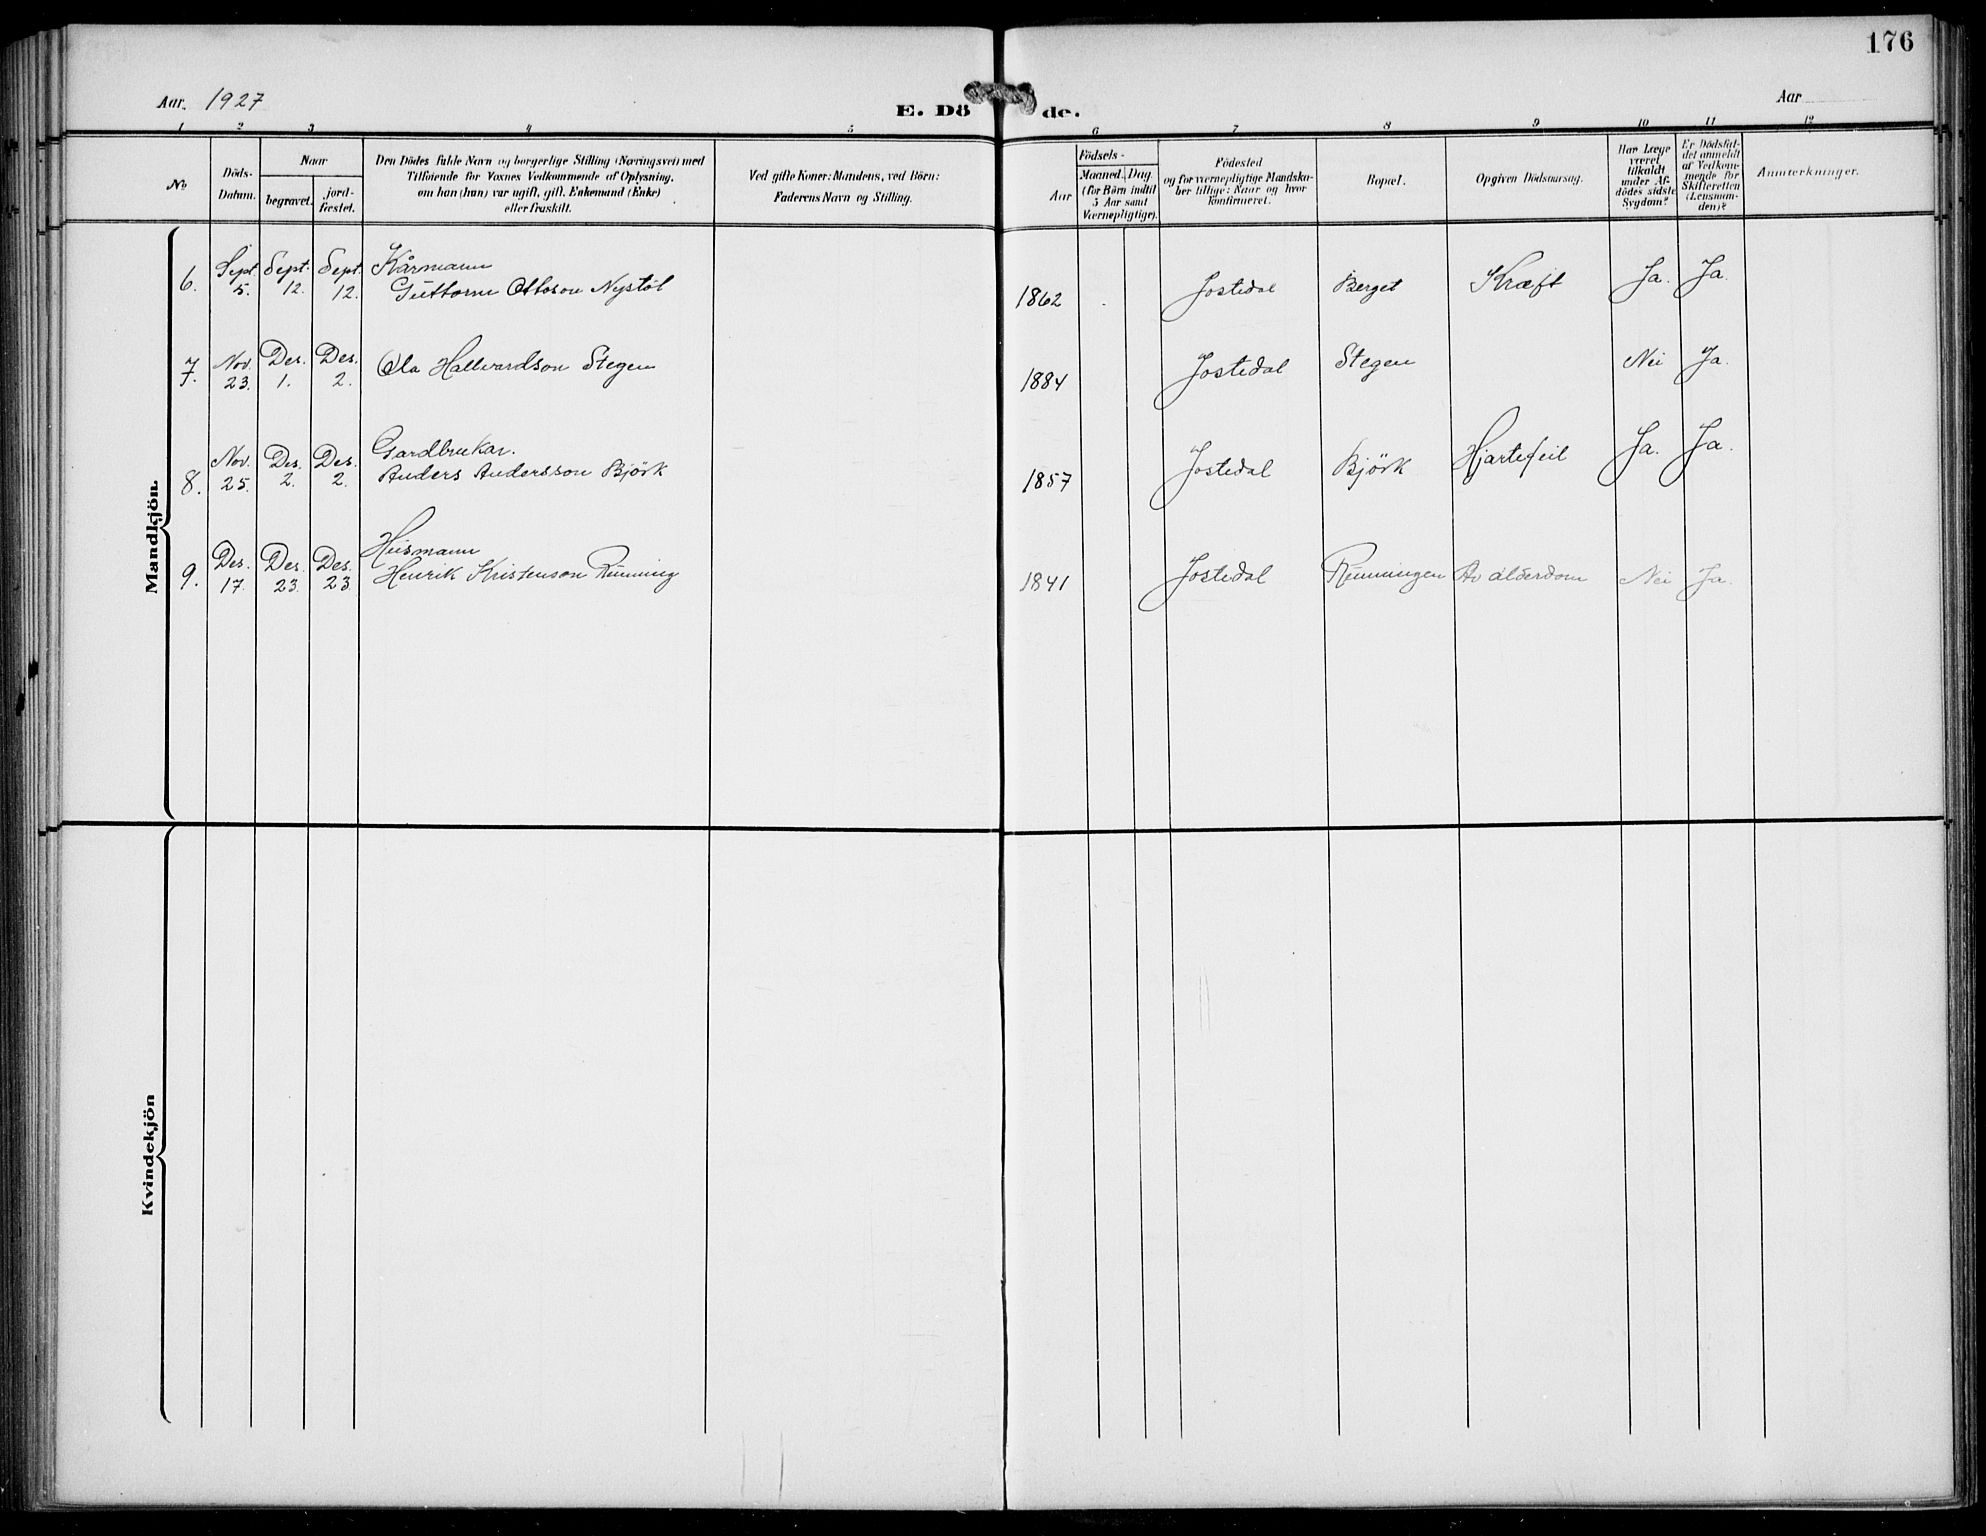 176
Aar. 1927
E. Dö de.
Aar
1 2 3 4 5 6 7 8 9 10 11 12
No
Döds-
Datum.
Naar
begravet.
jord-
fæstet.
Den Dödes fulde Navn og borgerlige Stilling (Næringsvei) med
Tilföiende for Voxnes Vedkommende af Oplysning,
om han (hun) var ugift, gift, Enkemand (Enke)
eller fraskilt.
Ved gifte Koner: Mandens, ved Börn:
Faderens Navn og Stilling.
Födsels-
Aar
Maaned. Dag.
(for Börn indtil
5 Aar samt
Værnepligtige).
Födested
og for værnepligtige Mandska-
ber tillige: Naar og hvor
konfirmeret.
Bopæl.
Opgiven Dödsaarsag.
Har Læge
været
tilkaldt
under Af-
dödes sidste
Sygdom?
Er Dödsfal-
det anmeldt
af Vedkom-
mende for
Skifteretten
(Lensman-
den)?
Anmærkninger.
Mandkjön.
6. Sept. 5. Sept. 12. Sept. 12. Kårmann
Guttorm Ottoson Nystöl 1862 Jostedal Berget Kræft Ja. Ja.
7. Nov. 23. Des. 1. Des. 2. Ola Hallvardson Stegen 1884 Jostedal Stegen Nei Ja.
8. Nov. 25. Des. 2. Des. 2. Gardbrukar.
Anders Andersson Björk 1857 Jostedal Björk Hjartefeil Ja. Ja.
9. Des. 17. Des. 23. Des. 23. Husmann
Henrik Kristenson Rünning 1841 Jostedal Rünningen Av alderdom Nei Ja.
Kvindekjön